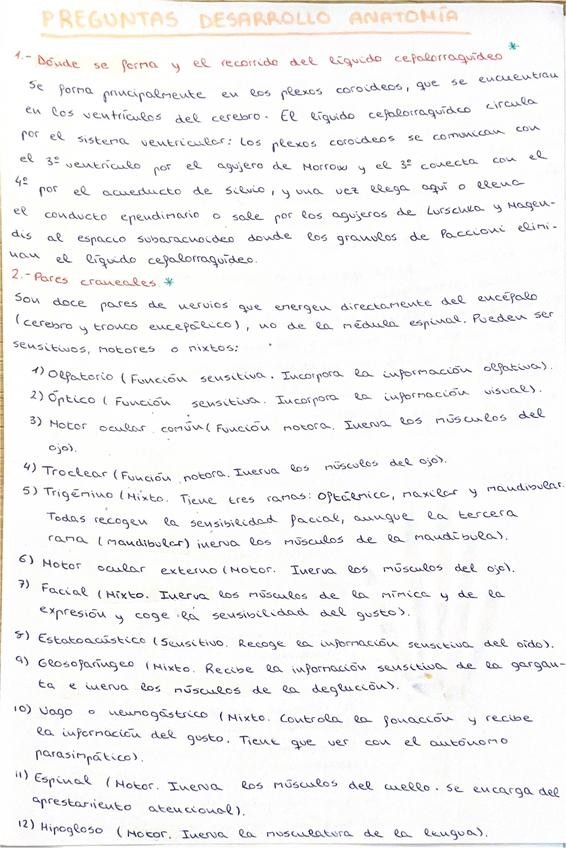 PREGUNTAS DESARROLLO ANATOMÍA
1.- Dónde se forma y el recorrido del líquido cefalorraquídeo *
Se forma principalmente en los plexos coroideos, que se encuentran
en los ventrículos del cerebro. El líquido cefalorraquídeo circula
por el sistema ventricular: Los plexos coroideos se comunican con
el 3º ventrículo por el agujero de Morrow y el 3º conecta con el
4º por el acueducto de Silvio, y una vez llega aquí o llena
el conducto ependimario o sale por los agujeros de Lurschka y Magen-
dis al espacio subaracnoideo donde los granulos de Paccioni elimi-
nan el líquido cefalorraquídeo.
2.- Pares craneales *
Son doce pares de nervios que emergen directamente del encéfalo
(cerebro y tronco encefálico), no de la médula espinal. Pueden ser
sensitivos, motores o mixtos:
1) Olfatorio (Función sensitiva. Incorpora la información olfativa).
2) Óptico (Función sensitiva. Incorpora la información visual).
3) Motor ocular común (Función motora. Inerva los músculos del
ojo).
4) Troclear (Función motora. Inerva los músculos del ojo).
5) Trigémino (Mixto. Tiene tres ramas: Oftálmica, maxilar y mandibular.
Todas recogen la sensibilidad facial, aunque la tercera
rama (mandibular) inerva los músculos de la mandíbula).
6) Motor ocular externo (Motor. Inerva los músculos del ojo).
7) Facial (Mixto. Inerva los músculos de la mímica y de la
expresión y coge la sensibilidad del gusto).
8) Estatoacústico (Sensitivo. Recoge la información sensitiva del oído).
9) Glosofaríngeo (Mixto. Recibe la información sensitiva de la gargan-
ta e inerva los músculos de la deglución).
10) Vago o neumogástrico (Mixto. Controla la fonación y recibe
la información del gusto. Tient que ver con el autónomo
parasimpático).
11) Espinal (Motor. Inerva los músculos del cuello. Se encarga del
aprestamiento atencional).
12) Hipogloso (Motor. Inerva la musculatura de la lengua).